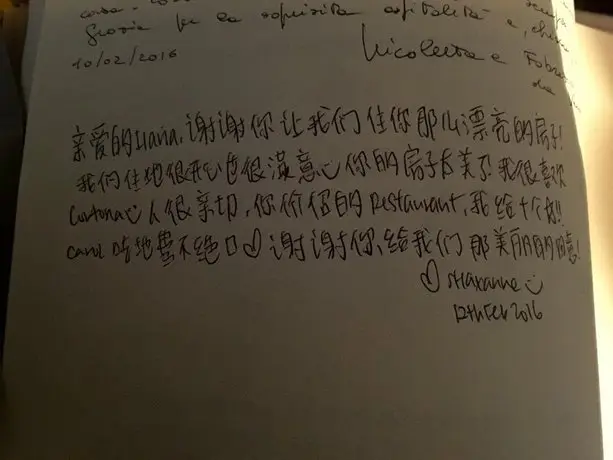 Grazie per la squisita ospitalità e, che
10/02/2016 Nicoletta e Fabr
da
亲爱的Ilaria,谢谢你让我们住你那么漂亮的房子!
我们住地很开心也很满意 你的房子太美了 我很喜欢
Cortona 人很亲切,你介绍的 Restaurant,我给十个好!!
Carol 吃地赞不绝口♡ 谢谢你,给我们那美丽的回忆!
♡
12th Feb 2016